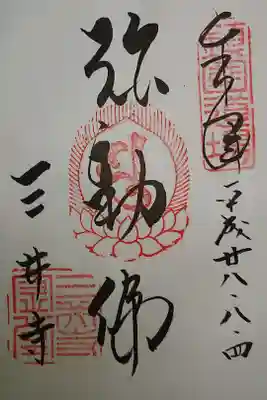 奉拝
平成廿八・八・四
弥勒佛
三井寺